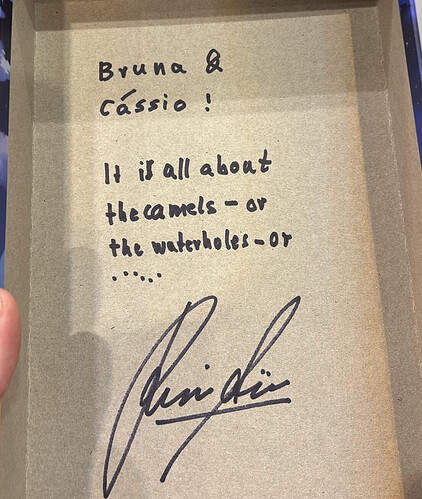 Bruna &
Cássio !
It is all about
the camels – or
the waterholes – or
......